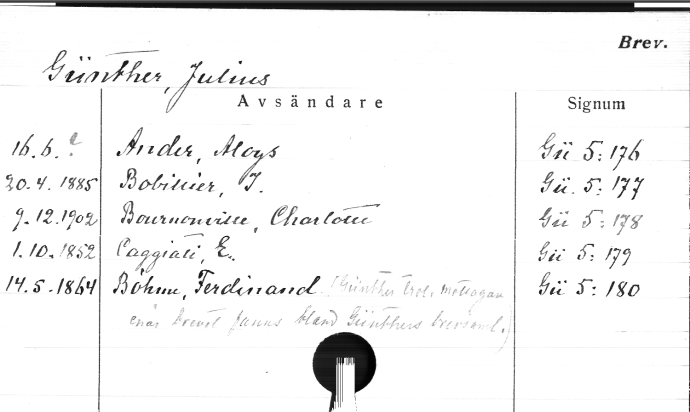 Brev.
Günther, Julius
Avsändare Signum
16.6. ? Ander, Aloys Gü 5:176
20.4. 1885 Bobillier, J. Gü. 5:177
9.12.1902 Bournonville, Charlotte Gü 5:178
1.10.1852 Caggiati, E. Gü 5:179
14.5.1864 Böhme, Ferdinand (Günther trol. mottagare Gü 5:180
enär brevet fanns bland Günthers brevsaml.)